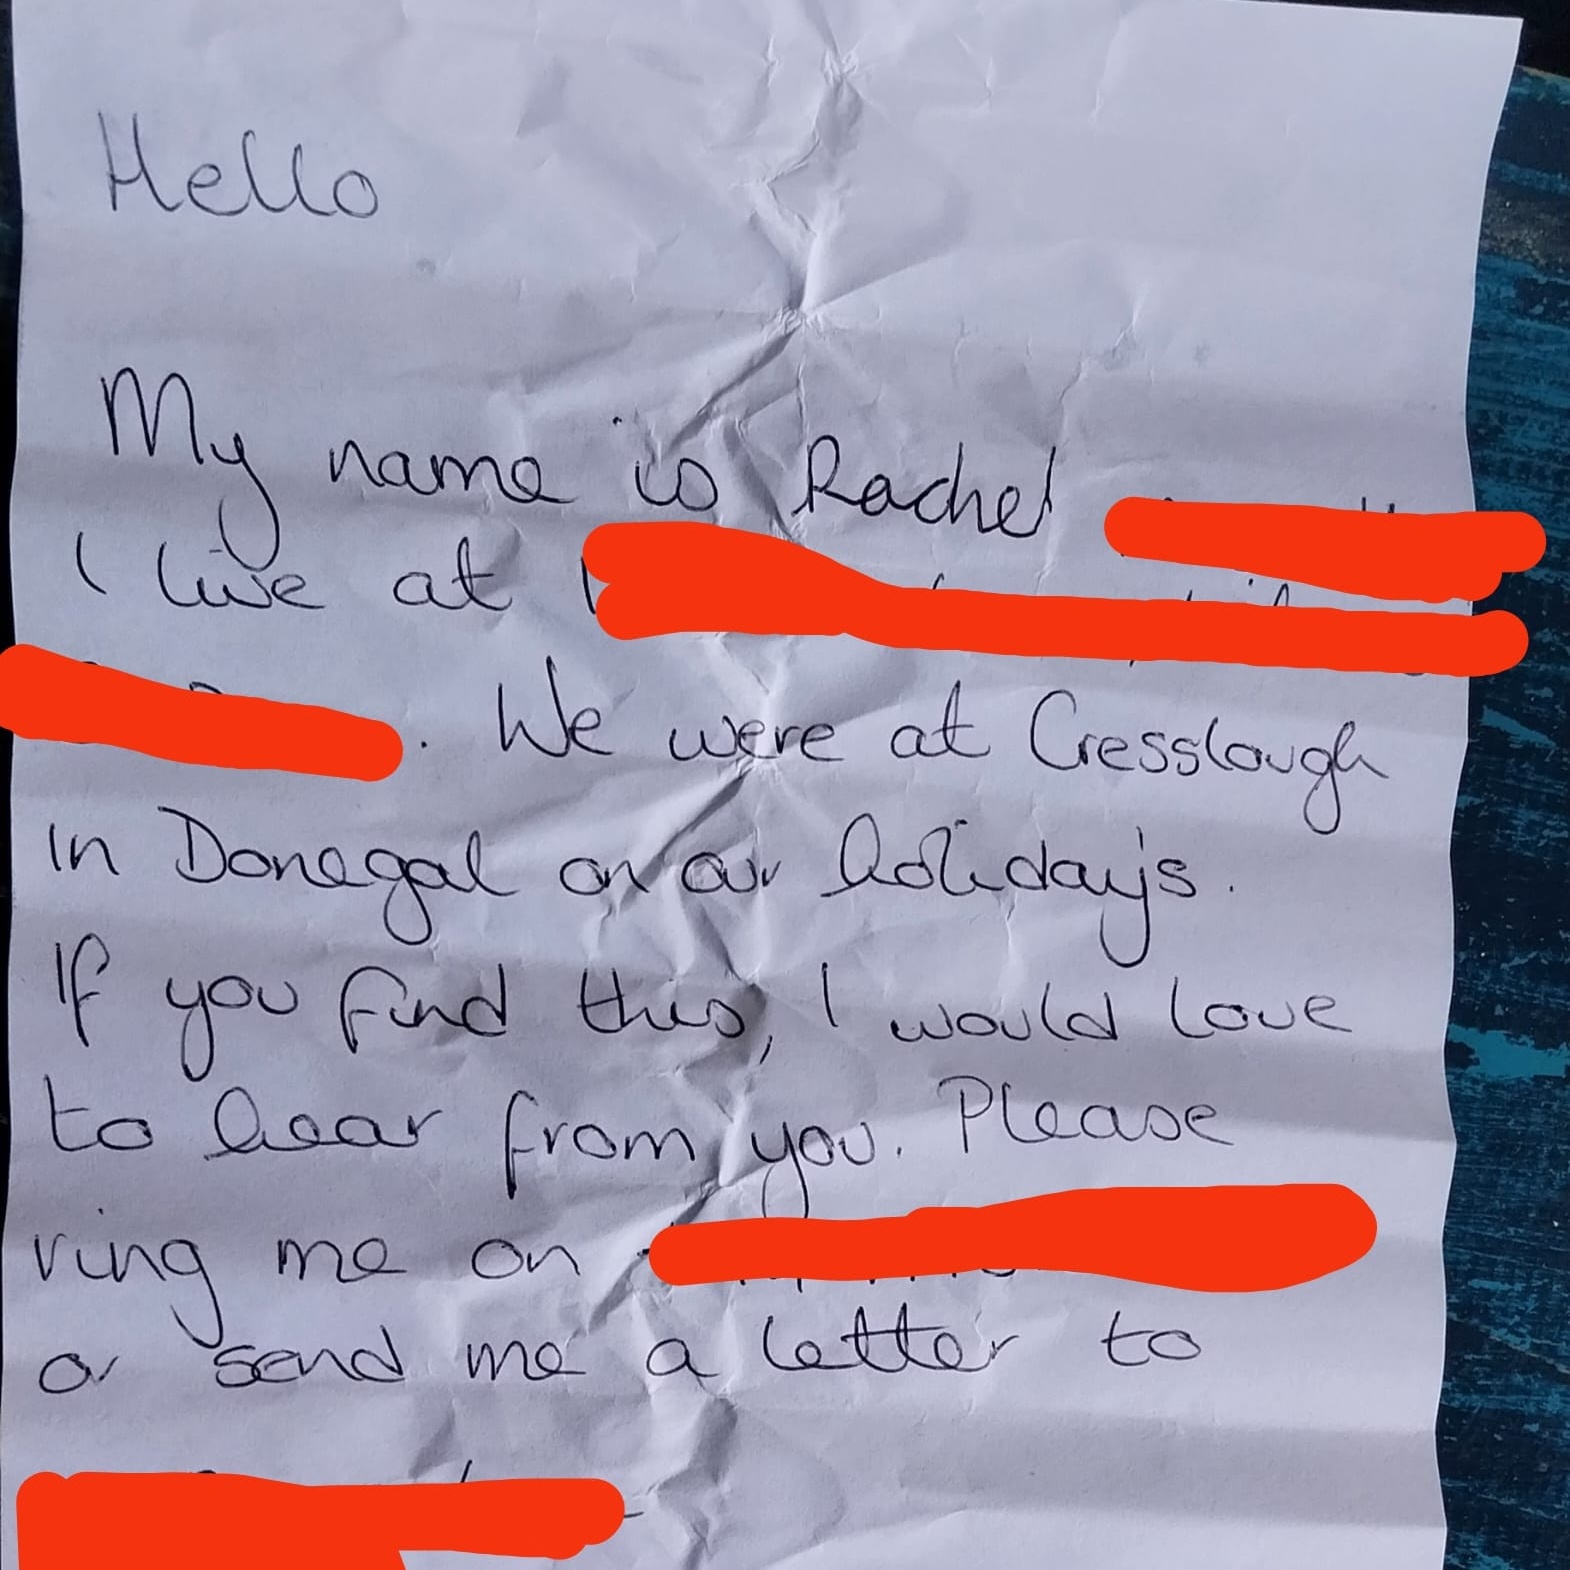 Hello
My name is Rachel
I live at
. We were at Cresslough
in Donegal on our holiday's.
If you find this, I would love
to hear from you. Please
ring me on
or send me a letter to